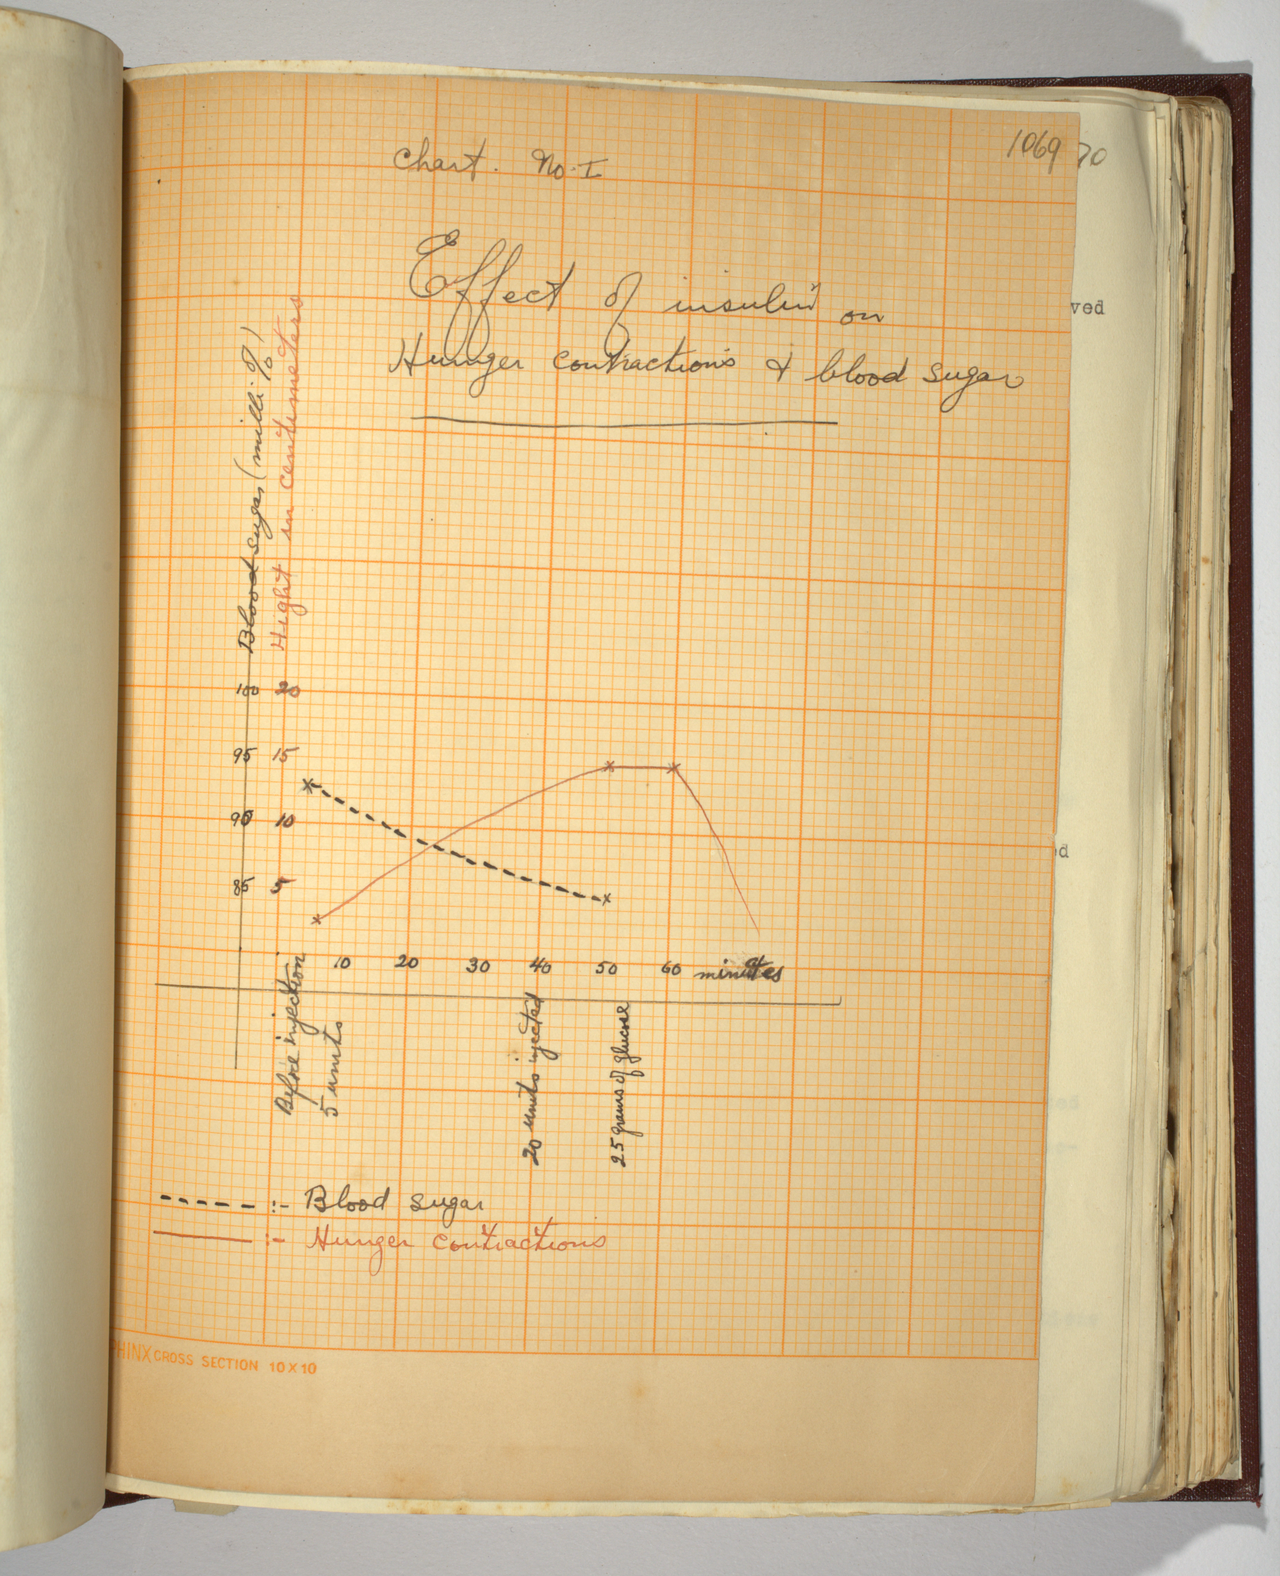 1069
70
Chart. No. I
ved
Effect of insulin on
Hunger contractions & blood sugar
Blood sugar (milli %)
Hight in centimeters
100 20
95 15
90 10
85 5
10 20 30 40 50 60 minutes
Before injection
5 units
20 units injected
25 grams of glucose
:- Blood sugar
:- Hunger contractions
HINX CROSS SECTION 10 X 10